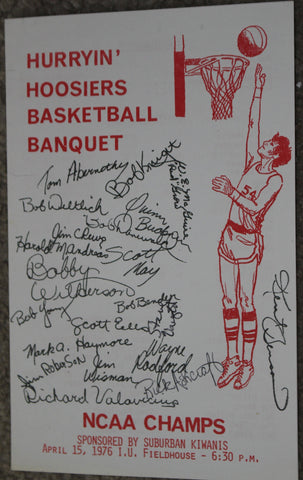 HURRYIN'
HOOSIERS
BASKETBALL
BANQUET
Tom Abernethy
Bob Knight
Bob Weltlich
Quinn
Buckner
Jim Crews
Harold Mandreas
Scott
May
Bobby
Wilkerson
Bob Bender
Scott Eells
Mark A. Haymore
Wayne
Radford
Jim Roberson
Jim
Wisman
Rich
Richard Valavicius
Kent Benson
54
NCAA CHAMPS
SPONSORED BY SUBURBAN KIWANIS
APRIL 15, 1976 I.U. FIELDHOUSE - 6:30 P.M.